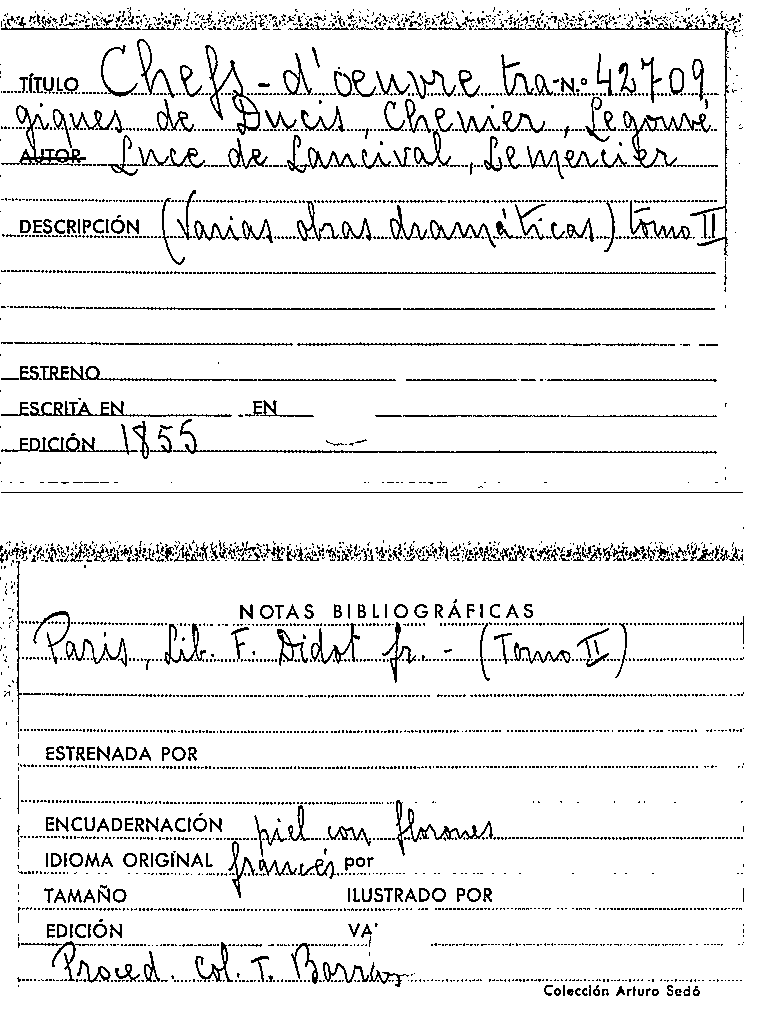 TÍTULO Chefs-d'oeuvre tra- N.º 42709
giques de Ducis, Chenier, Legouvé
AUTOR Luce de Lancival, Lemercier
DESCRIPCIÓN (Varias obras dramáticas) tomo II
ESTRENO
ESCRITA EN EN
EDICIÓN 1855
NOTAS BIBLIOGRÁFICAS
Paris, Lib. F. Didot fr. - (Tomo II)
ESTRENADA POR
ENCUADERNACIÓN piel con florones
IDIOMA ORIGINAL francés por
TAMAÑO ILUSTRADO POR
EDICIÓN VA
Proced. col. T. Borrás
Colección Arturo Sedó